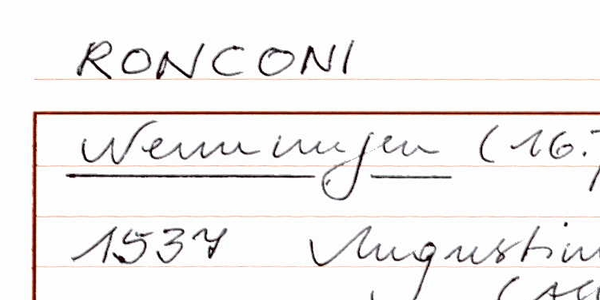 RONCONI
Wemmingen (16.
1537 Augustin